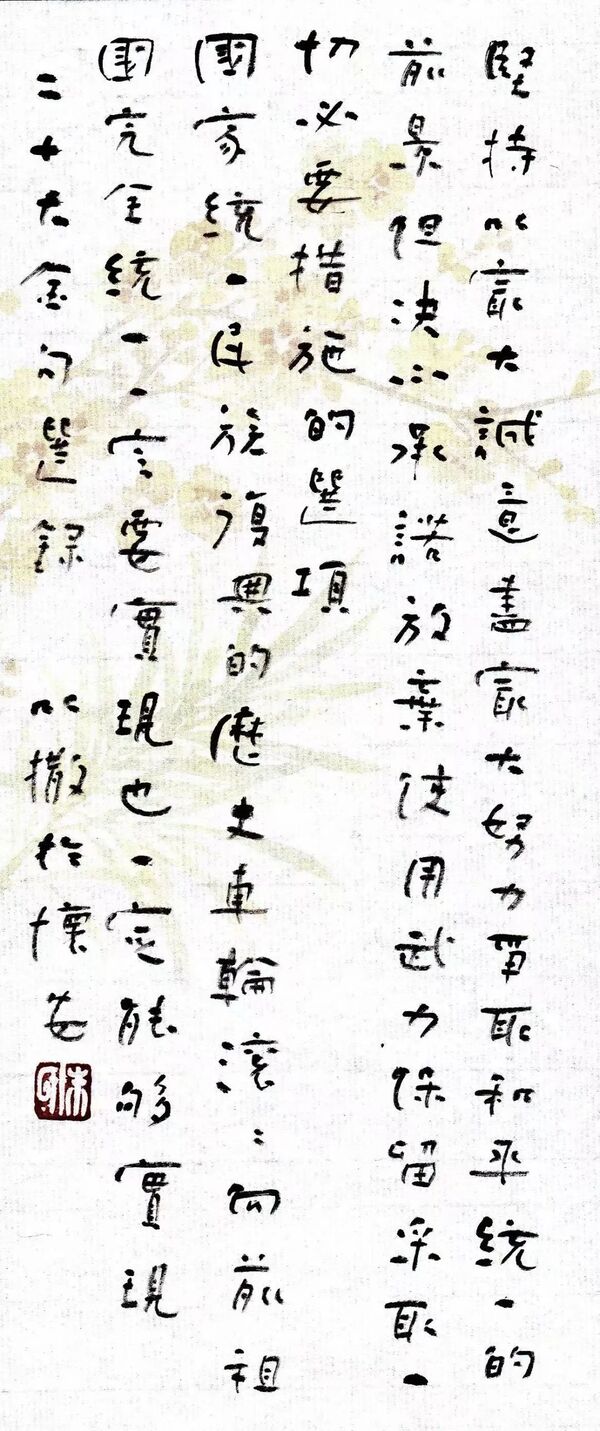 堅持以最大誠意盡最大努力爭取和平統一的
前景但決不承諾放棄使用武力保留采取一
切必要措施的選項
國家統一民族復興的歷史車輪滾〻向前祖
國完全統一一定要實現也一定能夠實現
二十大金句選錄 以撒於懷安